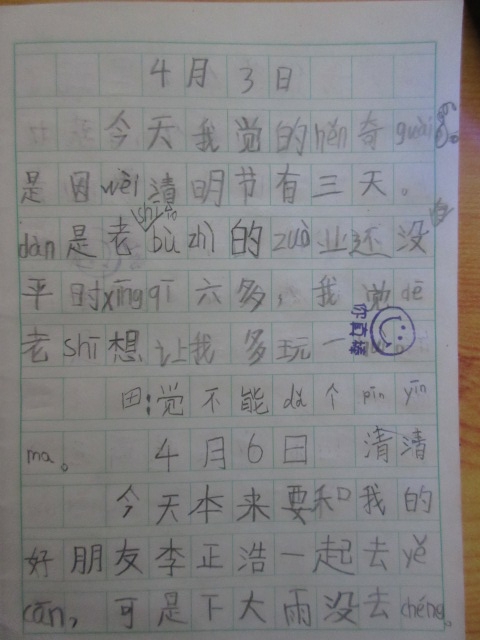 4月3日
今天我觉的hěn奇guài。
是因wèi清明节有三天。
dàn是老shī bù zhì的zuò业还没有
平时xīngqī六多，我觉dē
老shī想让我多玩一
你真棒
田:觉不能dǎ个pīn yīn
ma。 4月6日 清清
今天本来要和我的
好朋友李正浩一起去yě
cān，可是下大雨没去chéng。